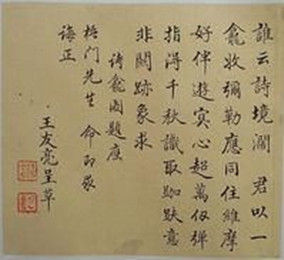 誰云詩境濶 君以一
龕收彌勒應同住維摩
好伴遊冥心超萬仞彈
指得千秋識取跏趺意
非關跡象求
詩龕圖題應
梧門先生 命即求
誨正
王友亮呈草